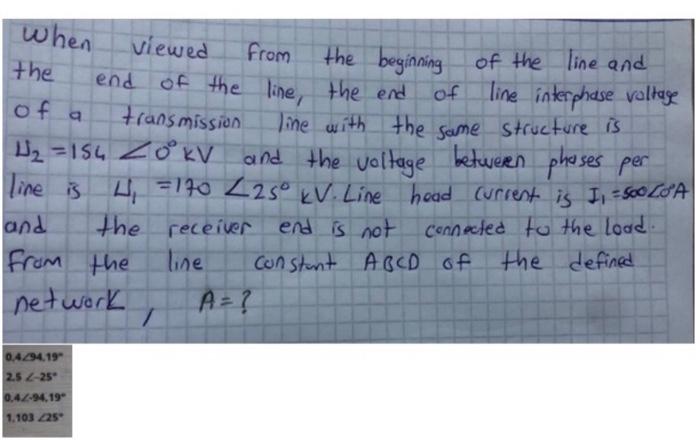 When viewed from the beginning of the line and
the end of the line, the end of line interphase voltage
of a transmission line with the same structure is
U₂ = 154 ∠0° kV and the voltage between phases per
line is U₁ = 170 ∠25° kV. Line head current is I₁ = 500∠0°A
and the receiver end is not connected to the load.
From the line constant ABCD of the defined
network, A = ?
0,4∠94,19°
2.5 ∠-25°
0,4∠-94,19°
1,103 ∠25°